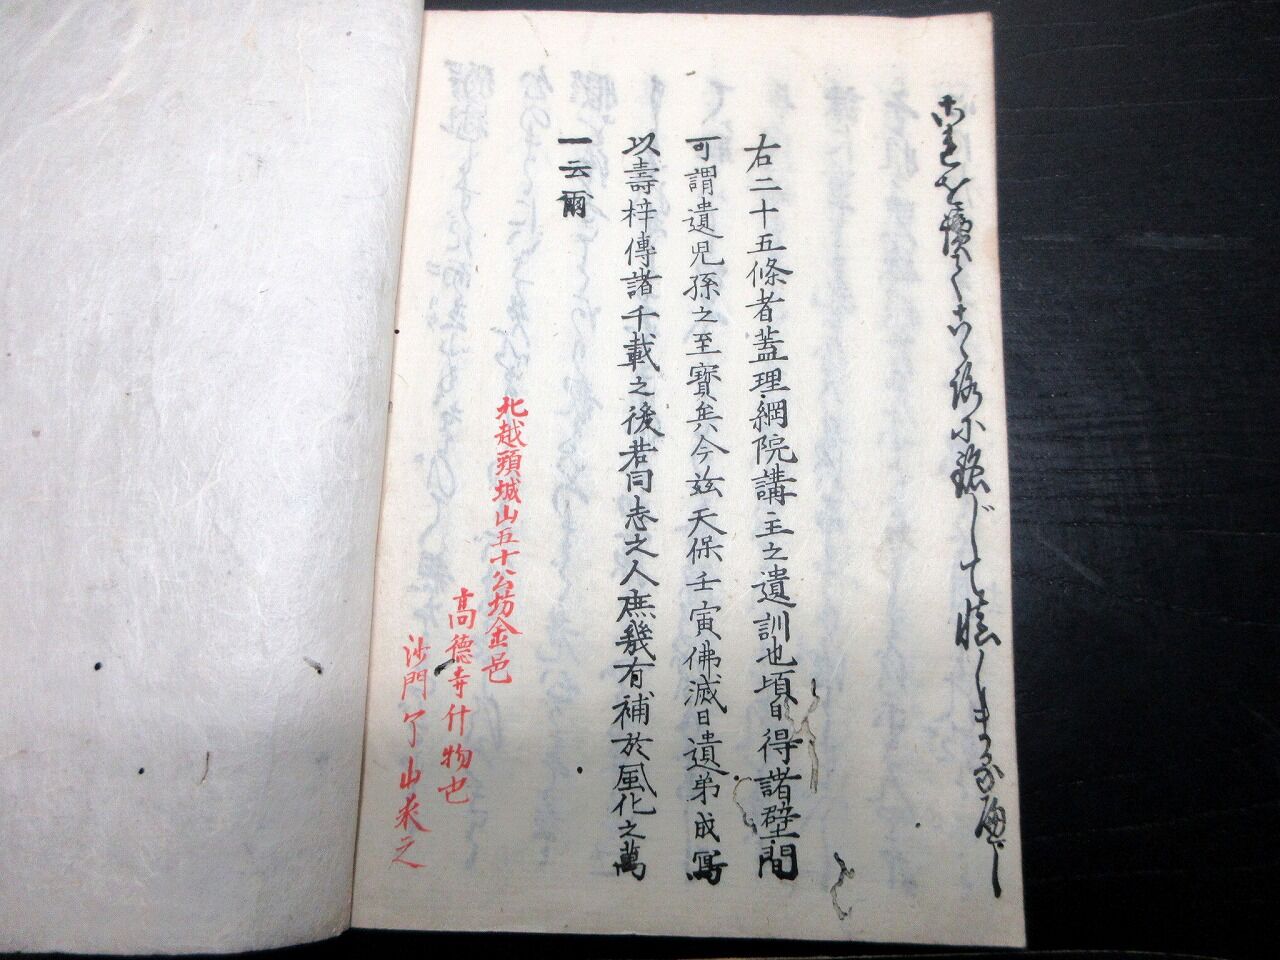 これを懐てふかく心に銘じて怯しまるなかれ
右二十五條者蓋理綱院講主之遺訓也頃日得諸壁間
可謂遺児孫之至寶矣今茲天保壬寅佛滅日遺弟成寫
以壽梓傳諸千載之後若同志之人庶幾有補於風化之萬
一云爾
北越頸城山五十公坊金邑
高德寺什物也
沙門了山求之